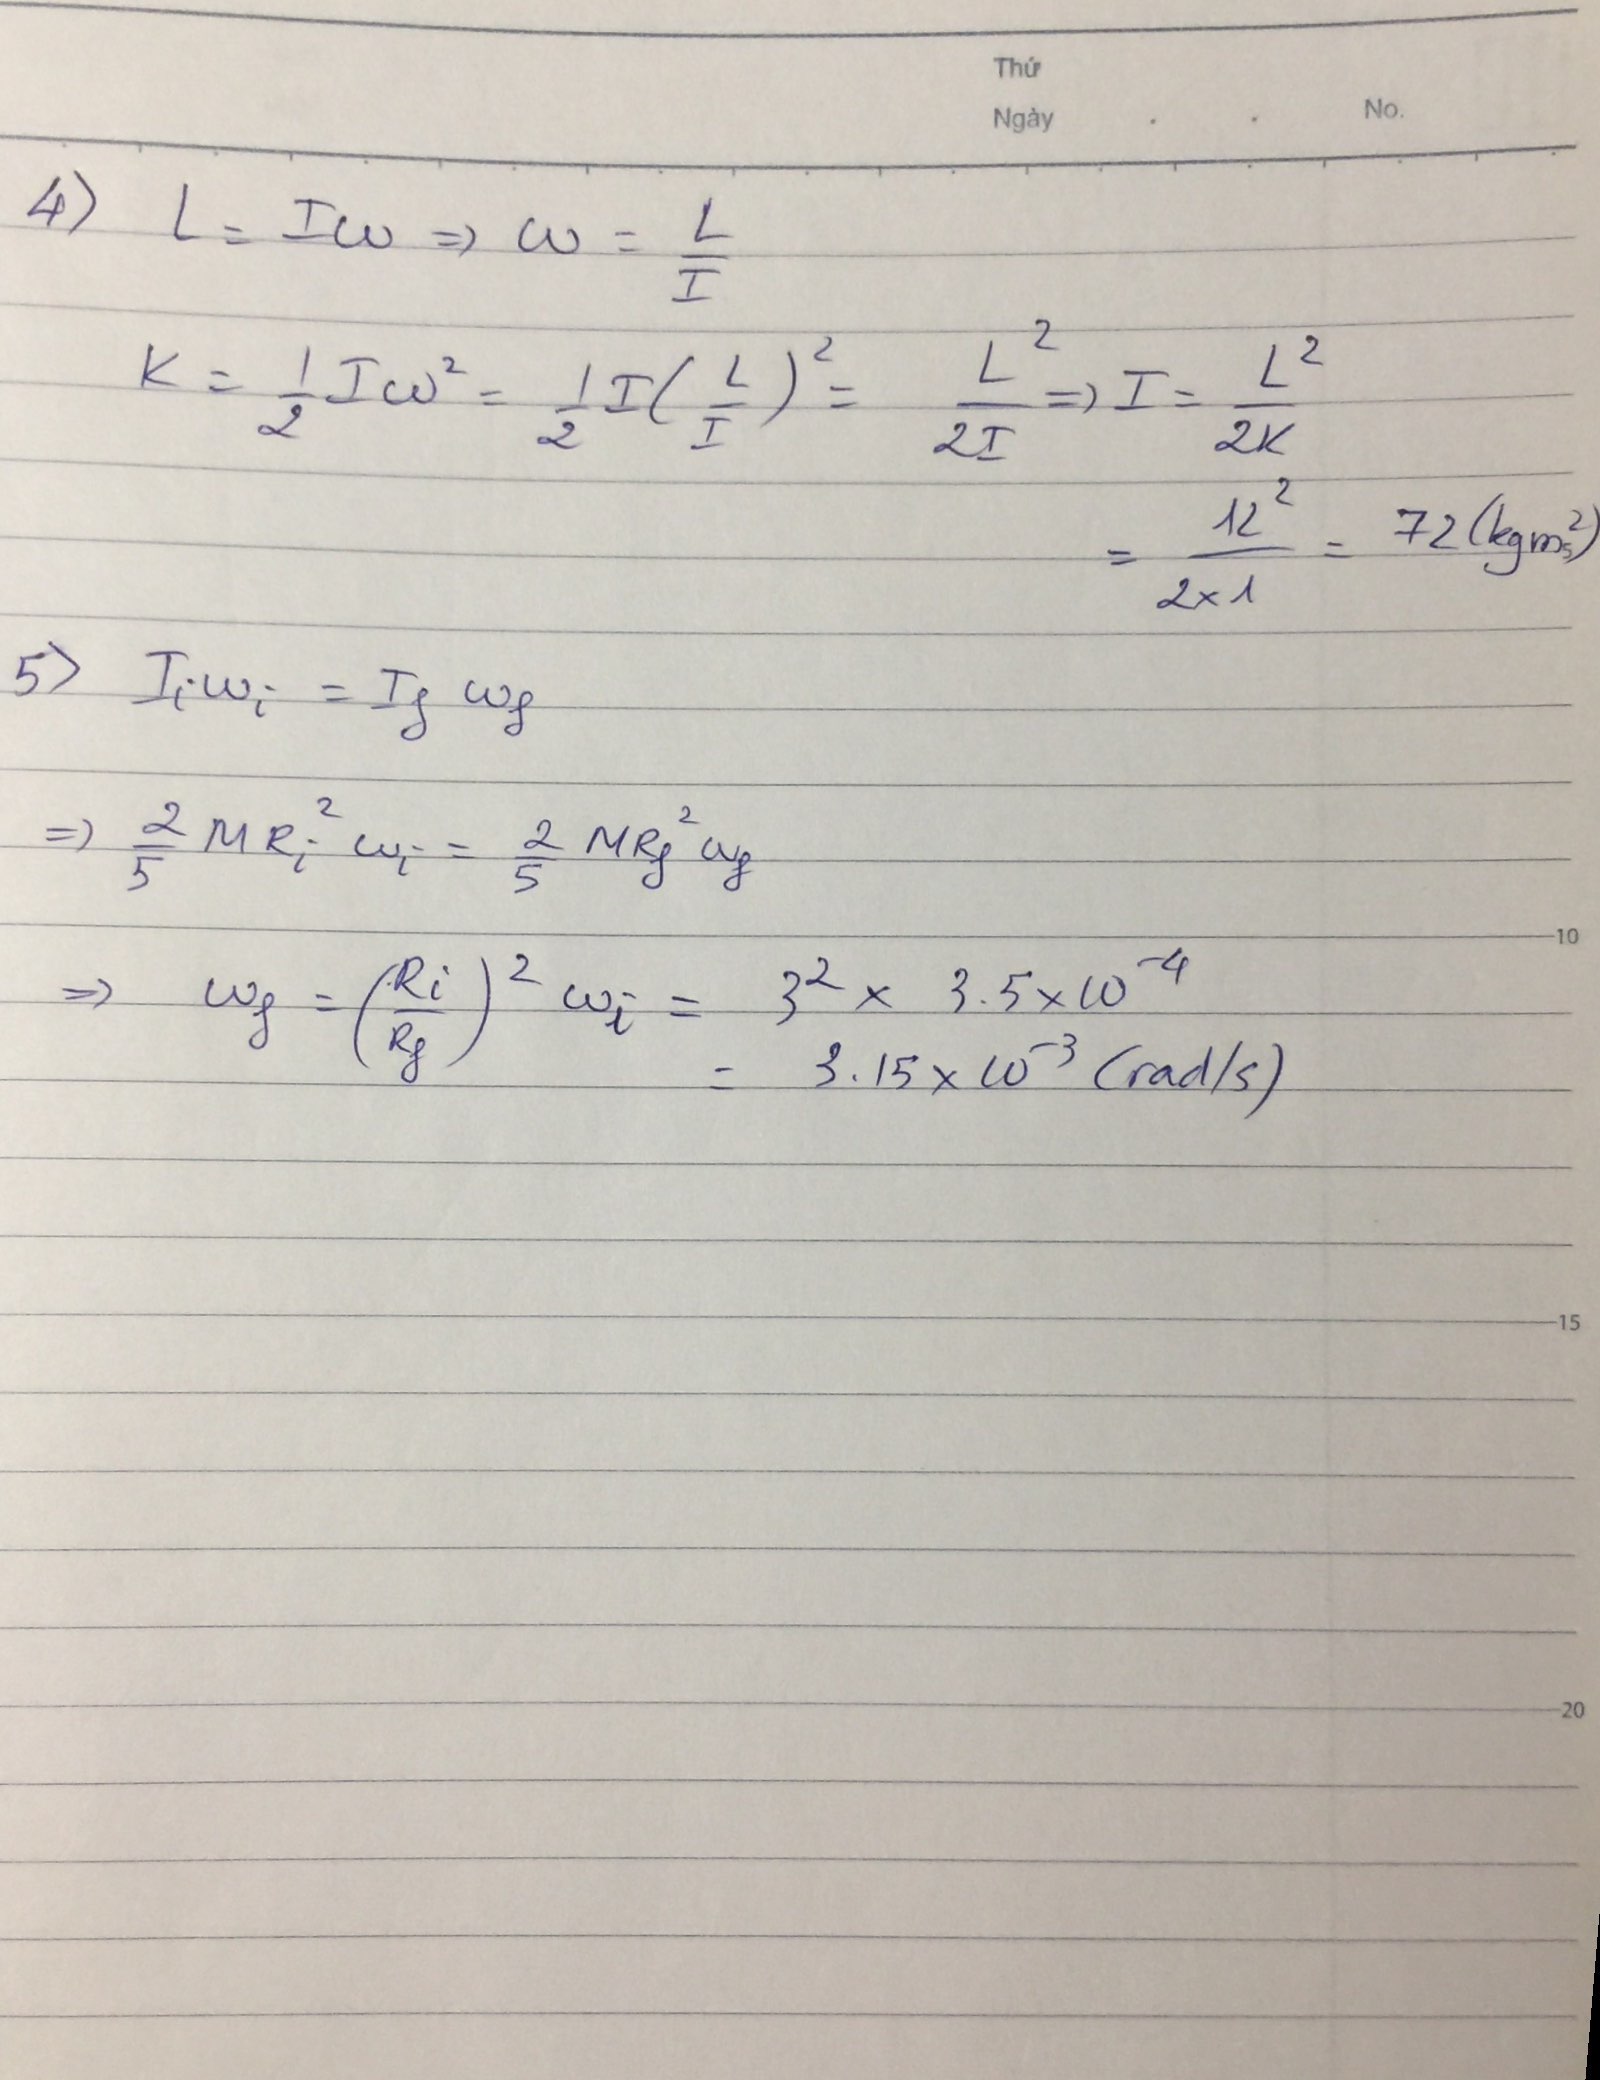 Thứ
Ngày . . No.
4) L = Iω => ω = L/I
K = 1/2 Iω² = 1/2 I(L/I)² = L²/2I => I = L²/2K
= 12²/2×1 = 72 (kgm²)
5) Iᵢωᵢ = I_f ω_f
=> 2/5 MRᵢ² ωᵢ = 2/5 MR_f² ω_f
10
=> ω_f = (Rᵢ/R_f)² ωᵢ = 3² × 3.5×10⁻⁴
= 3.15×10⁻³ (rad/s)
15
20